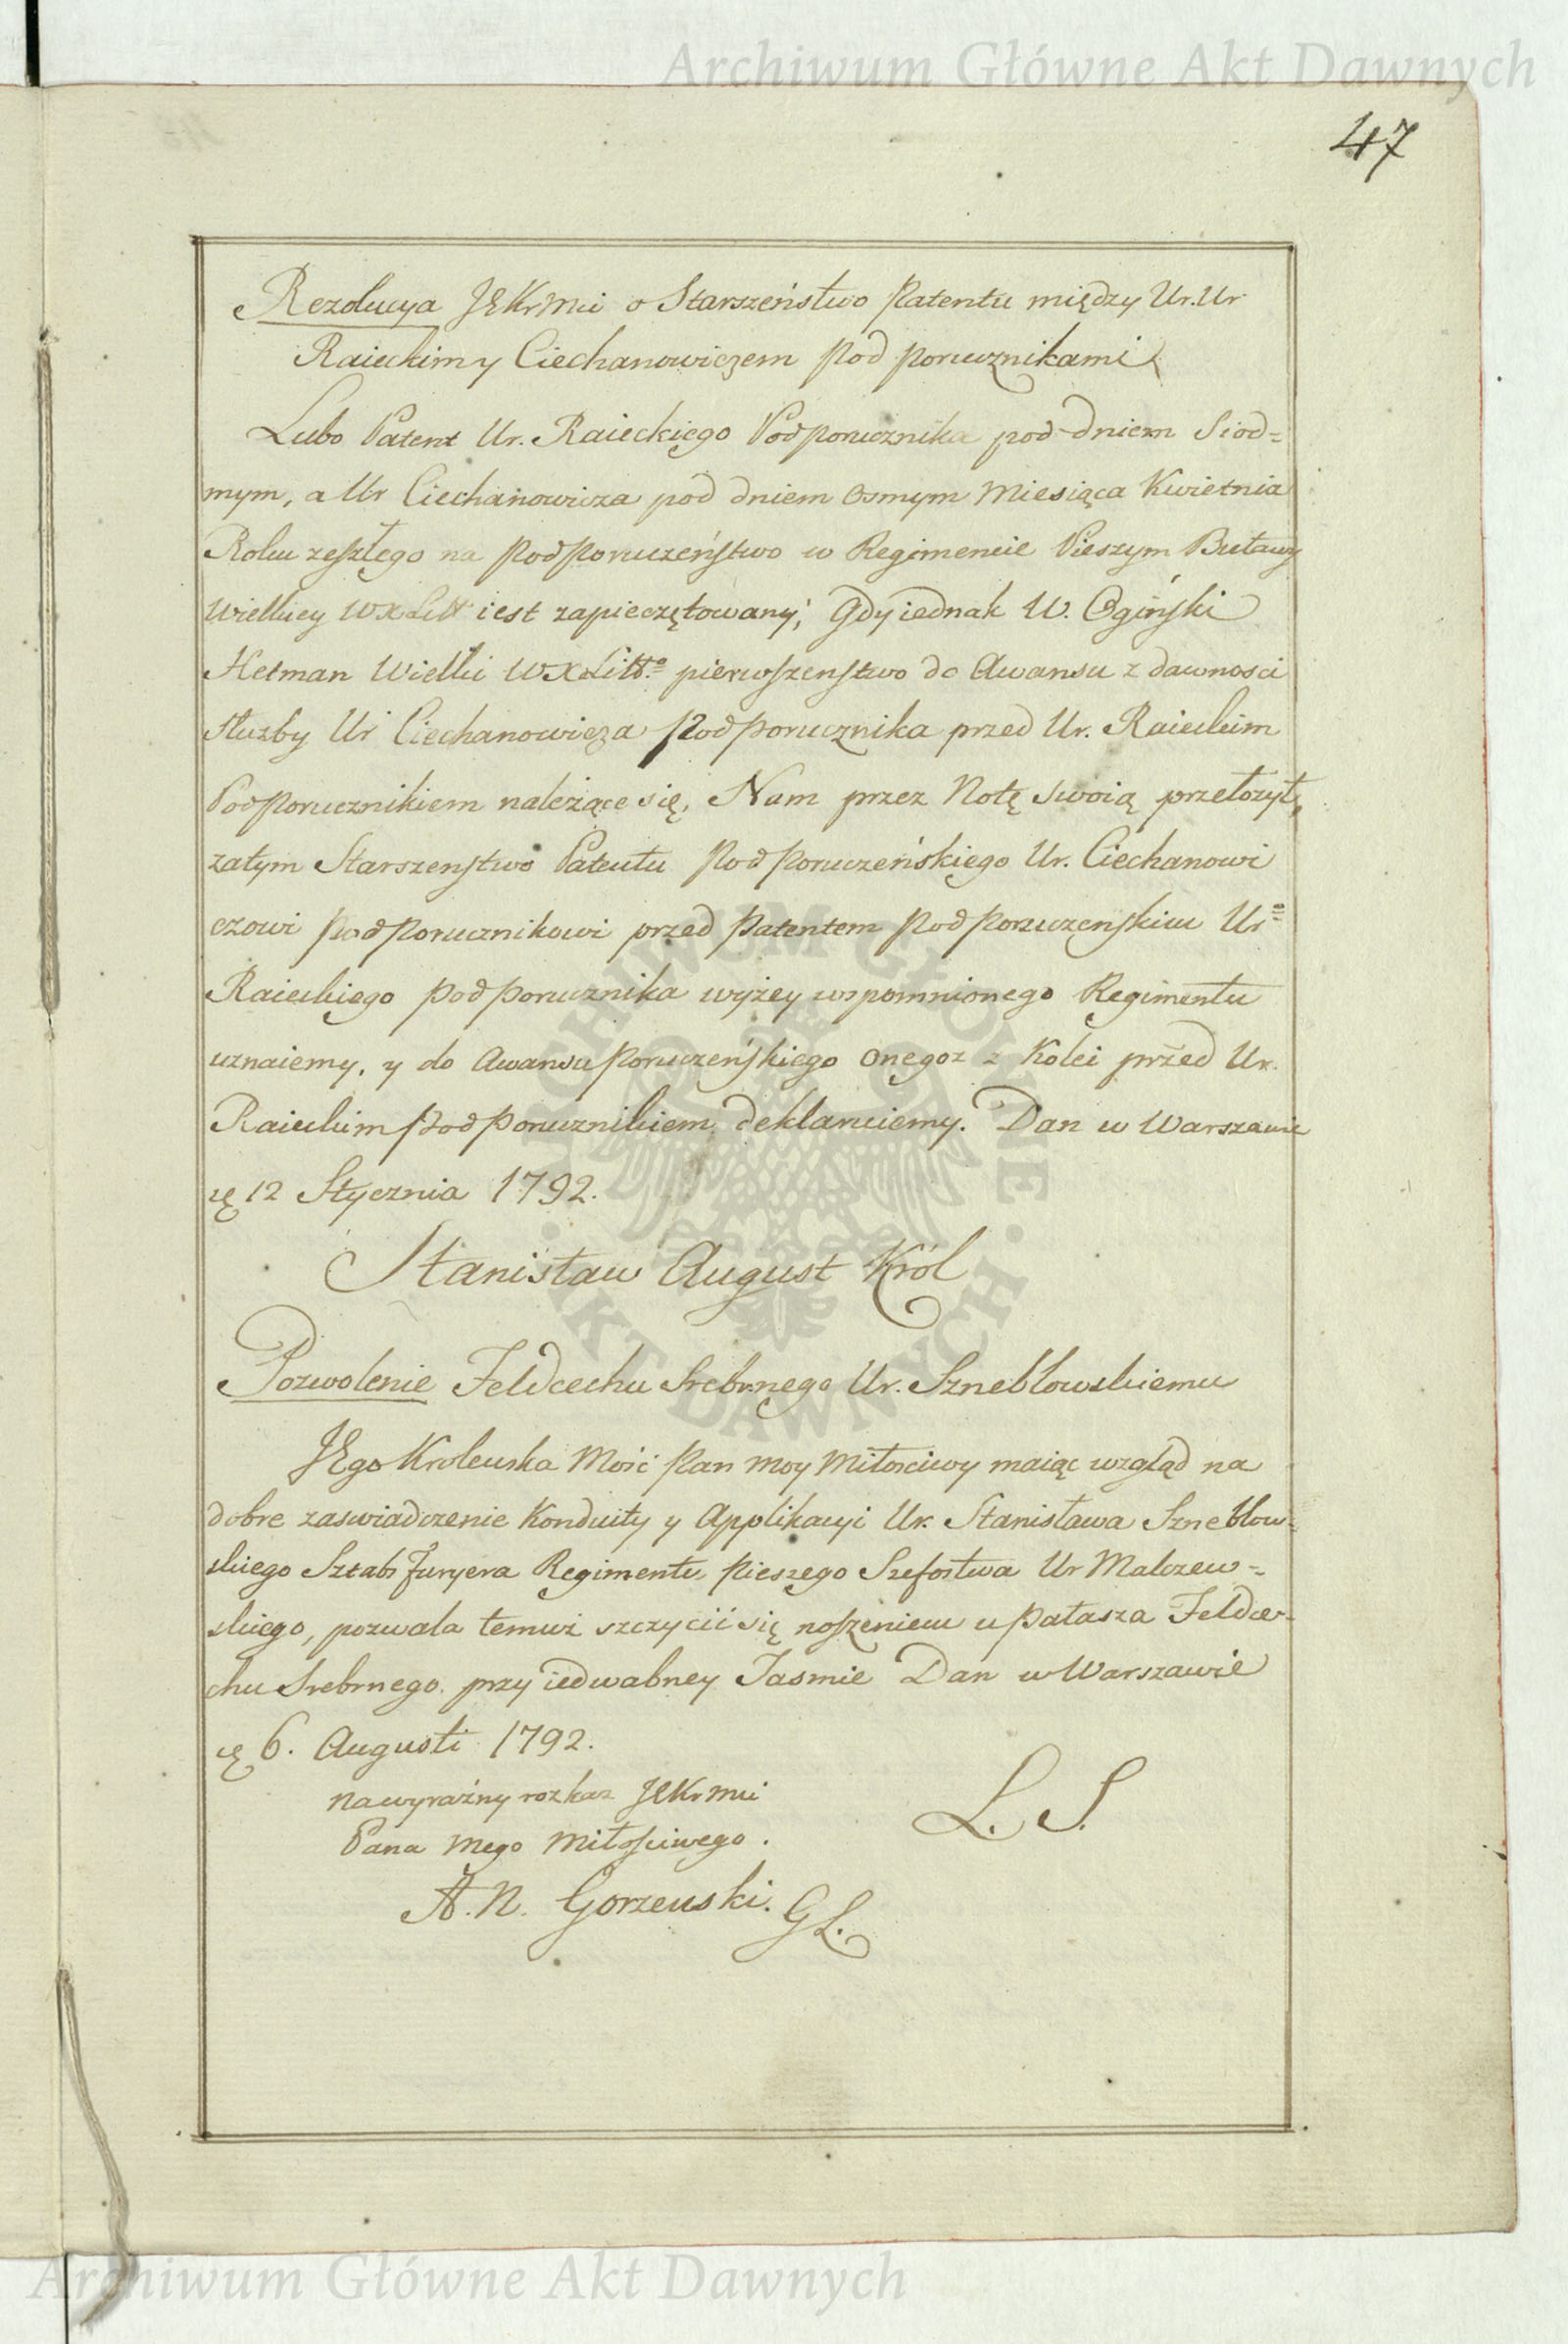 Archiwum Główne Akt Dawnych
47
Rezolucya JEKrMci o Starszeństwo Patentu między Ur. Ur
Raieckim y Ciechanowiczem Pod porucznikami
Lubo Patent Ur. Raieckiego Podporucznika pod dniem Siod=
mym, a Ur Ciechanowicza pod dniem Osmym Miesiąca Kwietnia
Roku zeszłego na Podporuczeństwo w Regimencie Pieszym Buławy
Wielkiey WXLitt iest zapieczętowany; Gdy iednak W. Ogiński
Hetman Wielki WXLitt.º pierwszenstwo do Awansu z dawnosci
służby Ur Ciechanowicza Podporucznika przed Ur. Raieckim
Podporucznikiem należące się, Nam przez Notę swoią przełozył,
zatym Starszenstwo Patentu Podporuczeńskiego Ur. Ciechanowi
czowi Podporucznikowi przed Patentem Podporuczenskim Urº
Raieckiego podporucznika wyżey wspomnionego Regimentu
uznaiemy, y do Awansu Poruczeńskiego onegoz z Kolei przed Ur.
Raieckim Podporucznikiem deklaruiemy. Dan w Warszawie
ię 12 Stycznia 1792.
Stanisław August Król
Pozwolenie Feldcechu Srebrnego Ur. Szneblowskiemu
JEgo Krolewska Mość Pan moy Miłosciwy maiąc wzgląd na
dobre zaswiadczenie Konduity y Applikacyi Ur. Stanisława Szneblow=
skiego Sztabs Furyera Regimentu Pieszego Szefostwa Ur Malczew=
skiego, pozwala temuż szczycić się noszeniem u Pałasza Feldce=
chu Srebrnego przy iedwabney Tasmie Dan w Warszawie
ię 6. Augusti 1792.
na wyraźny rozkaz JEKrMci
Pana Mego Miłosciwego.
L. S.
A. N. Gorzenski. GL.
ARCHIWUM GŁÓWNE AKT DAWNYCH
Archiwum Główne Akt Dawnych